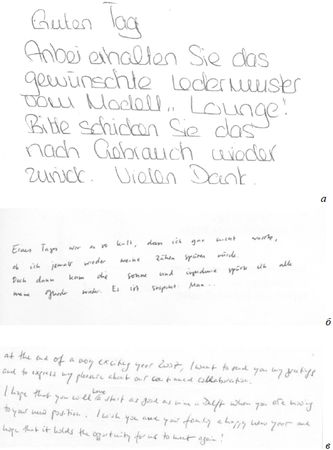 Guten Tag
Anbei erhalten Sie das
gewünschte Ledermuster
vom Modell „Lounge!
Bitte schicken Sie das
nach Gebrauch wieder
zurück. Vielen Dank.
а
Eines Tages war es so kalt, dass ich gar nicht wusste,
ob ich jemals wieder meine Zähen spüren würde.
Doch dann kam die Sonne und irgendwie spürte ich alle
meine wieder. Es ist
б
at the end of a very exciting year 2005, I want to send you my greetings
and to express my pleasure about our continued collaboration.
I hope that you will have start as good as in Delft when you are moving
to your new position. I wish you and your family a happy new year and
hope that it holds the opportunity for us to meet again!
в